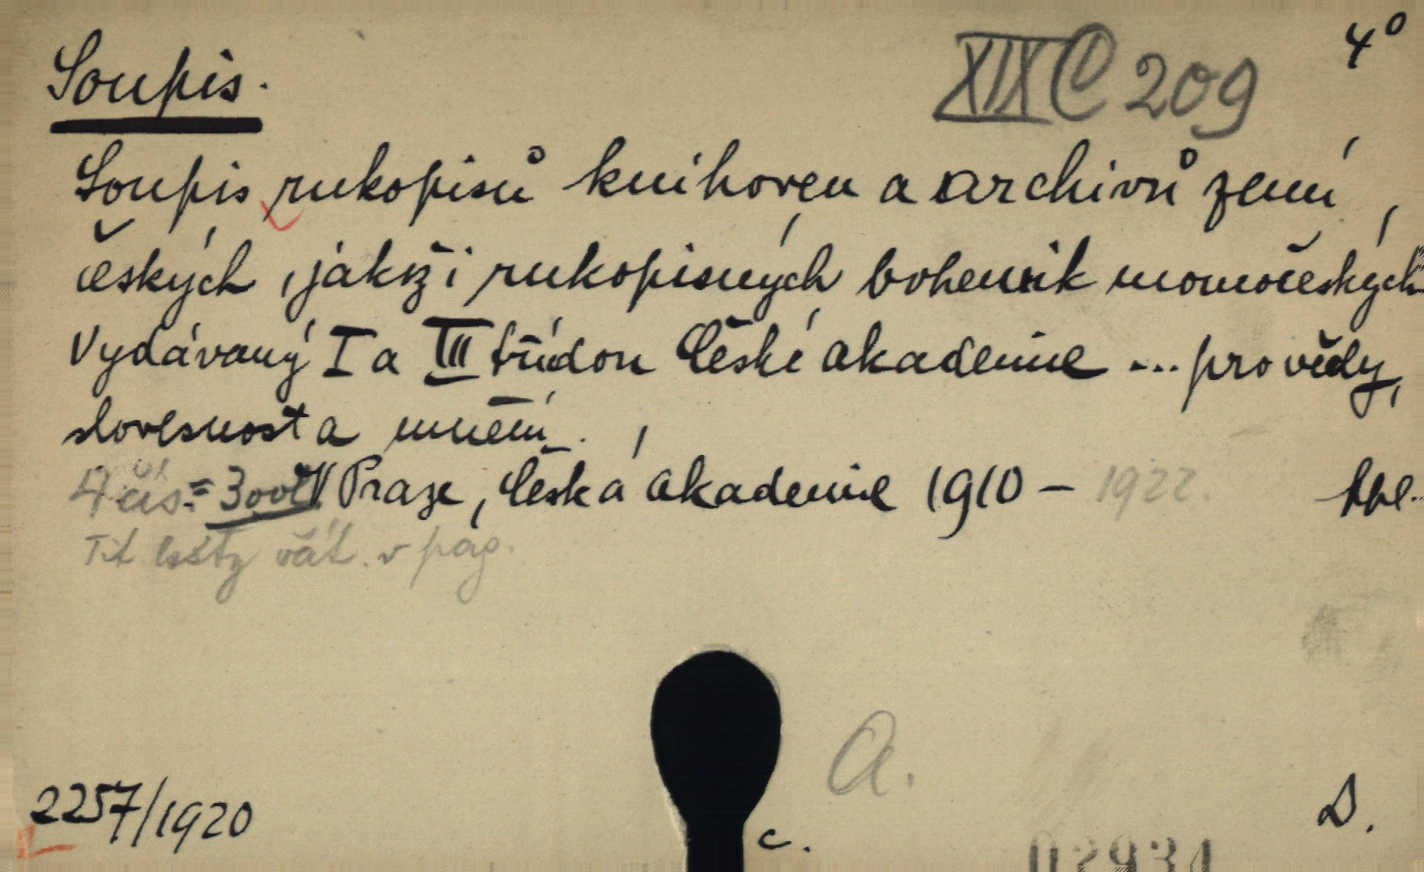 4°
XIX C 209
Soupis.
Soupis rukopisů knihoven a archivů zemí
českých, jakož i rukopisných bohemik mimočeských.
Vydávaný I a III třídou České akademie ... pro vědy,
slovesnost a umění.
4 čís. = 3 V Praze, Česká akademie 1910 – 1922.
Tit listy v pag.
a.
2257/1920
D.
c.
02934